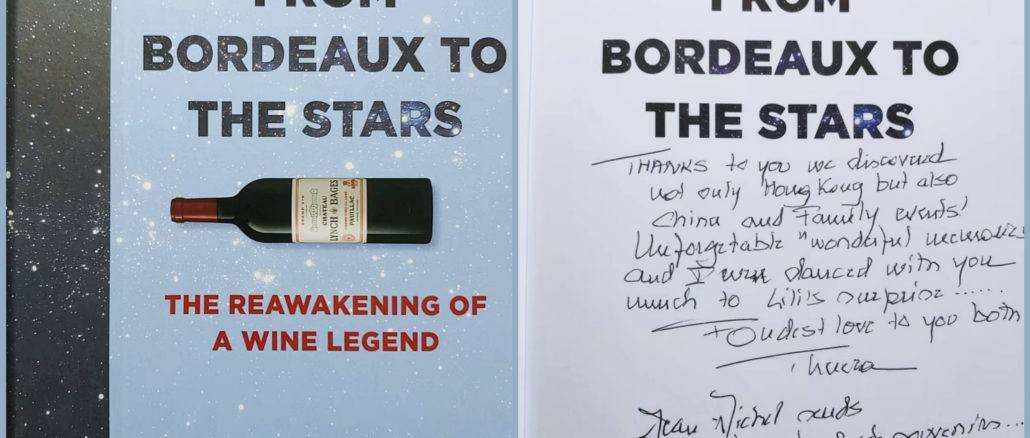 FROM
BORDEAUX TO
THE STARS
GRAND VIN
CHATEAU
LYNCH BAGES
PAUILLAC
THE REAWAKENING OF
A WINE LEGEND
FROM
BORDEAUX TO
THE STARS
THANKS to you we discovered
not only Hong Kong but also
China and Family events!
Unforgetable "wonderful memories
and I danced with you
much to Lili's surprise ......
Fondest love to you both
Jean Michel sends
souvenirs...